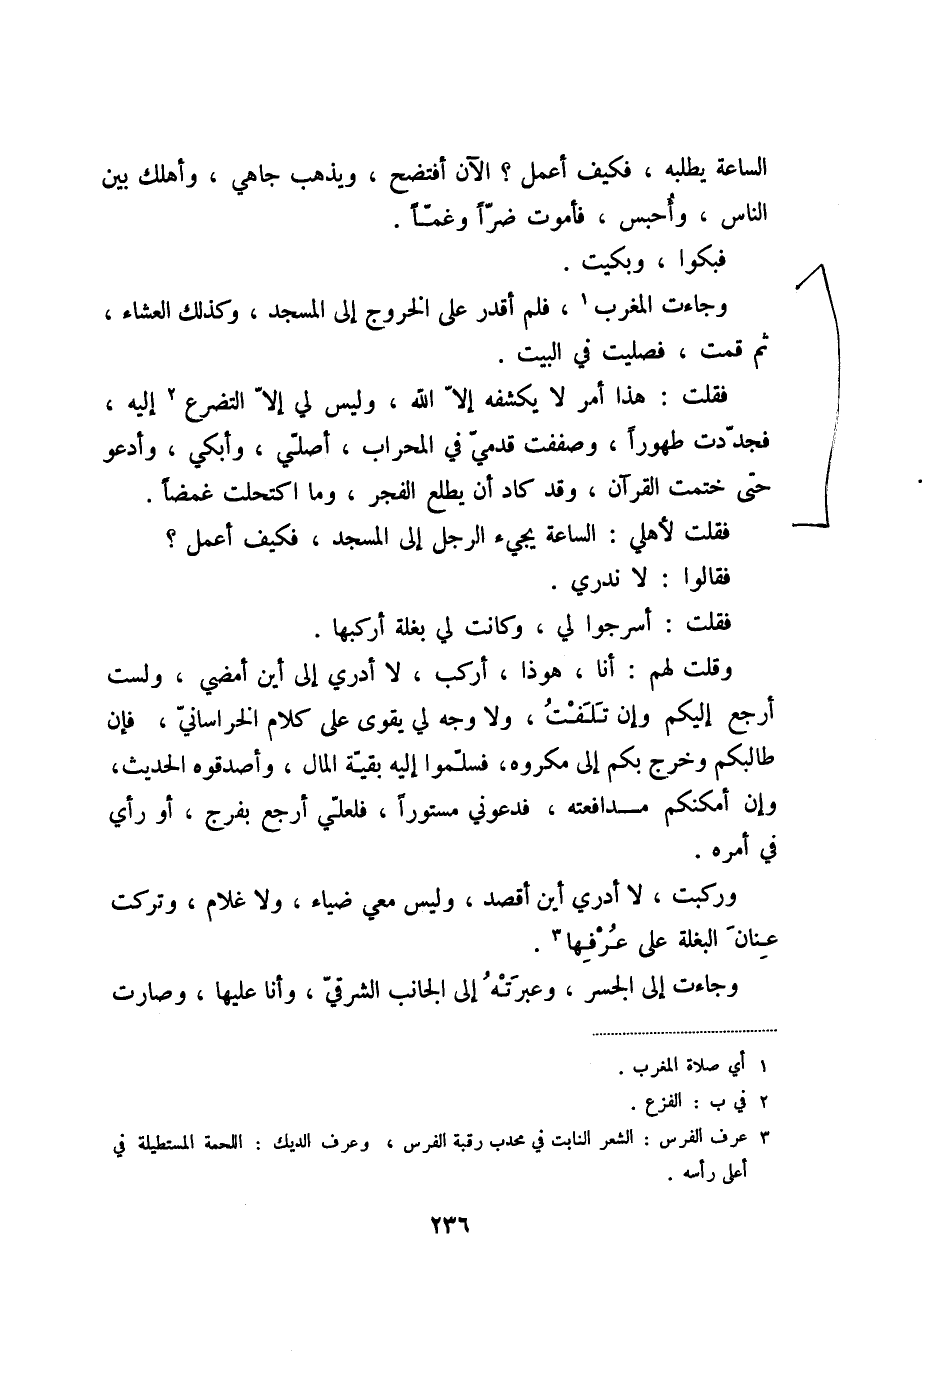 الساعة يطلبه ، فكيف أعمل ؟ الآن أفتضح ، ويذهب جاهي ، وأهلك بين
الناس ، وأُحبس ، فأموت ضرّاً وغمّاً .
فبكوا ، وبكيت .
وجاءت المغرب ١ ، فلم أقدر على الخروج إلى المسجد ، وكذلك العشاء ،
ثم قمت ، فصليت في البيت .
فقلت : هذا أمر لا يكشفه إلاّ الله ، وليس لي إلاّ التضرع ٢ إليه ،
فجدّدت طهوراً ، وصففت قدميّ في المحراب ، أصلّي ، وأبكي ، وأدعو
حتّى ختمت القرآن ، وقد كاد أن يطلع الفجر ، وما اكتحلت غمضاً .
فقلت لأهلي : الساعة يجيء الرجل إلى المسجد ، فكيف أعمل ؟
فقالوا : لا ندري .
فقلت : أسرجوا لي ، وكانت لي بغلة أركبها .
وقلت لهم : أنا ، هوذا ، أركب ، لا أدري إلى أين أمضي ، ولست
أرجع إليكم وإن تَلَفْتُ ، ولا وجه لي يقوى على كلام الخراسانيّ ، فإن
طالبكم وخرج بكم إلى مكروه، فسلّموا إليه بقيّة المال ، وأصدقوه الحديث،
وإن أمكنكم مــدافعته ، فدعوني مستوراً ، فلعلّي أرجع بفرج ، أو رأي
في أمره .
وركبت ، لا أدري أين أقصد ، وليس معي ضياء ، ولا غلام ، وتركت
عِنانَ البغلة على عُرْفِها ٣ .
وجاءت إلى الجسر ، وعبرَتْهُ إلى الجانب الشرقيّ ، وأنا عليها ، وصارت
١ أي صلاة المغرب .
٢ في ب : الفزع .
٣ عرف الفرس : الشعر النابت في محدب رقبة الفرس ، وعرف الديك : اللحمة المستطيلة في
أعلى رأسه .
٢٣٦